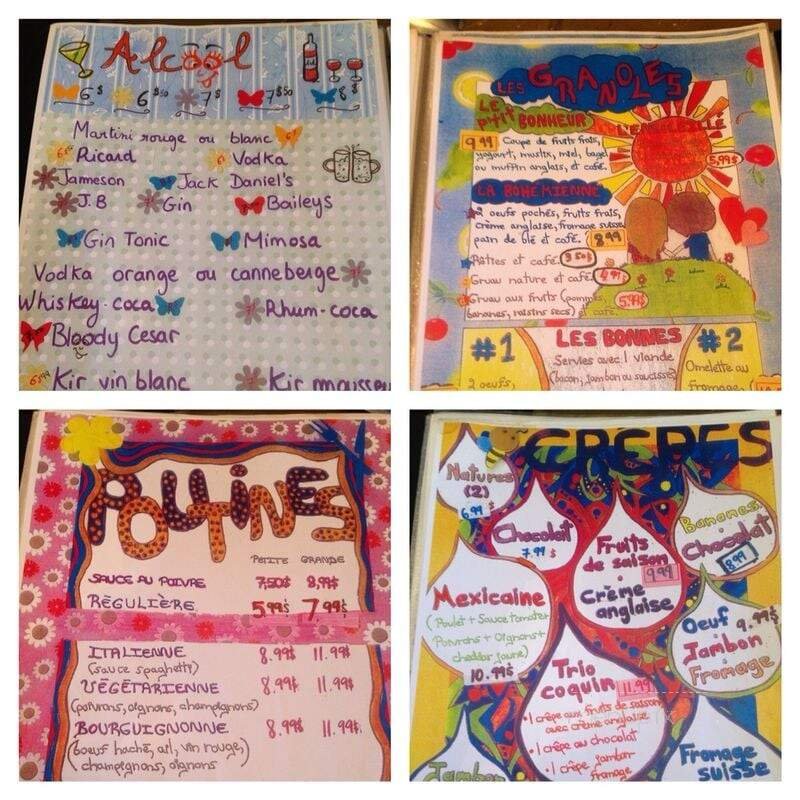 Alcool
6$ 6$50 7$ 7$50 8$
Martini rouge ou blanc 6$
6$ Ricard 6$ Vodka
Jameson Jack Daniel's
J.B Gin Baileys
Gin Tonic Mimosa
Vodka orange ou canneberge
Whiskey-coca Rhum-coca
Bloody Cesar
Kir vin blanc Kir
LES GRANOLES
LE P'TIT BONHEUR
9.99 Coupe de fruits frais,
yogourt, muslix, miel, bagel
ou muffin anglais, et café.
5,99$
LA BOHÉMIENNE
2 oeufs pochés, fruits frais,
crème anglaise, fromage suisse
pain de blé et café. 8.99
Rôties et café. 3.50$
Gruau nature et café. 4.99
Gruau aux fruits (pommes,
bananes, raisins secs) et café. 5.99$
#1 LES BONNES #2
Servies avec 1 viande
(bacon, jambon ou saucisse)
2 oeufs,
Omelette au
fromage,
POUTINES
PETITE GRANDE
SAUCE AU POIVRE 7,50$ 8,99$
RÉGULIÈRE 5.99$ 7.99$
ITALIENNE 8.99$ 11.99$
(sauce spaghetti)
VÉGÉTARIENNE 8.99$ 11.99$
(poivrons, oignons, champignons)
BOURGUIGNONNE 8.99$ 11.99$
(boeuf haché, ail, vin rouge,
champignons, oignons
CRÊPES
Natures
(2)
6.99$
Chocolat
7.99$
Fruits
de saison
9.99
Crème
anglaise
Bananes
Chocolat
8.99
Mexicaine
(Poulet + Sauce tomate+
Poivrons + Oignons+
cheddar jaune)
10.99$
Oeuf 9.99$
Jambon
Fromage
Trio
coquin 11.99
• 1 crêpe aux fruits de saison
avec crème anglaise
• 1 crêpe au chocolat
• 1 crêpe jambon
fromage
Jambon
Fromage
suisse